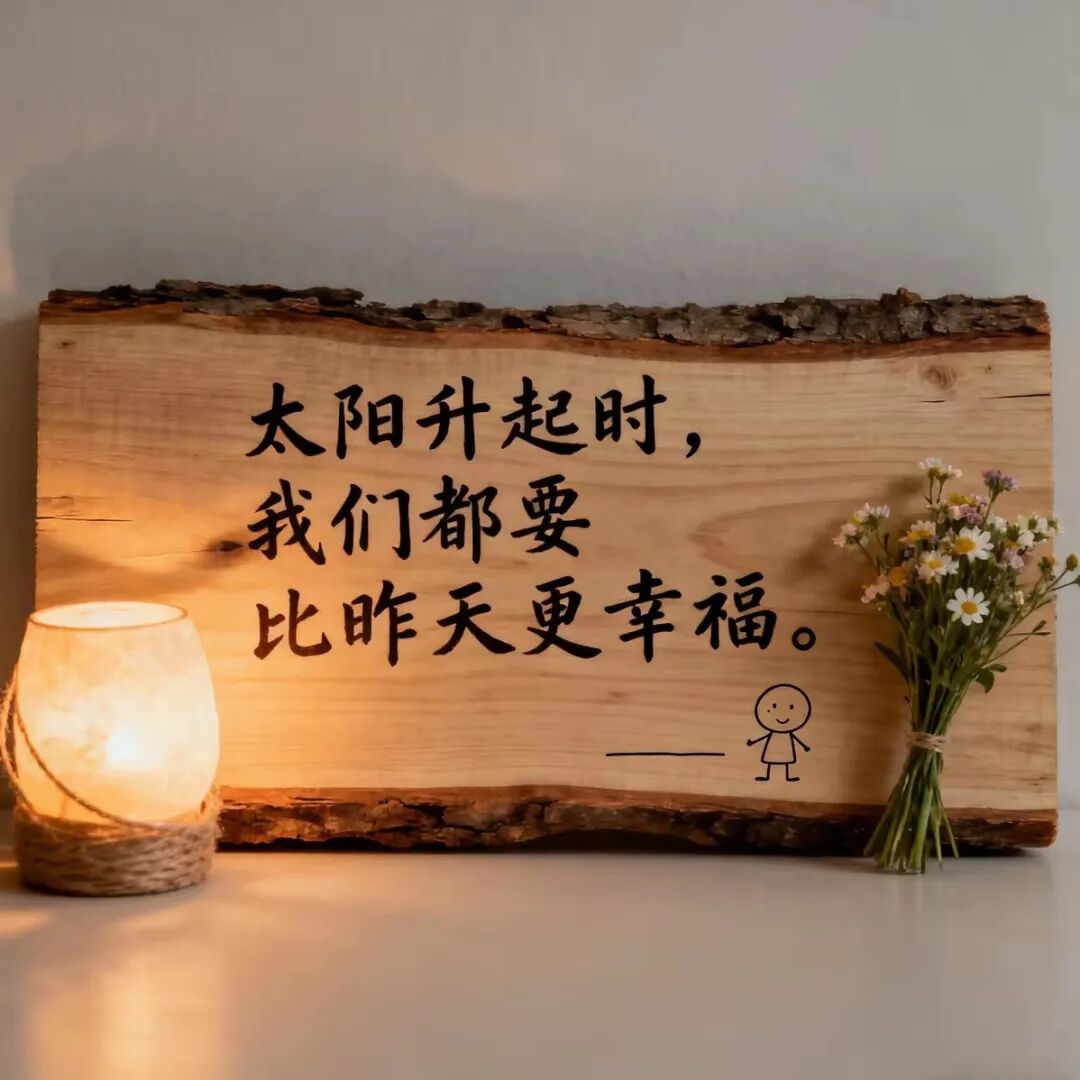 太阳升起时，
我们都要
比昨天更幸福。